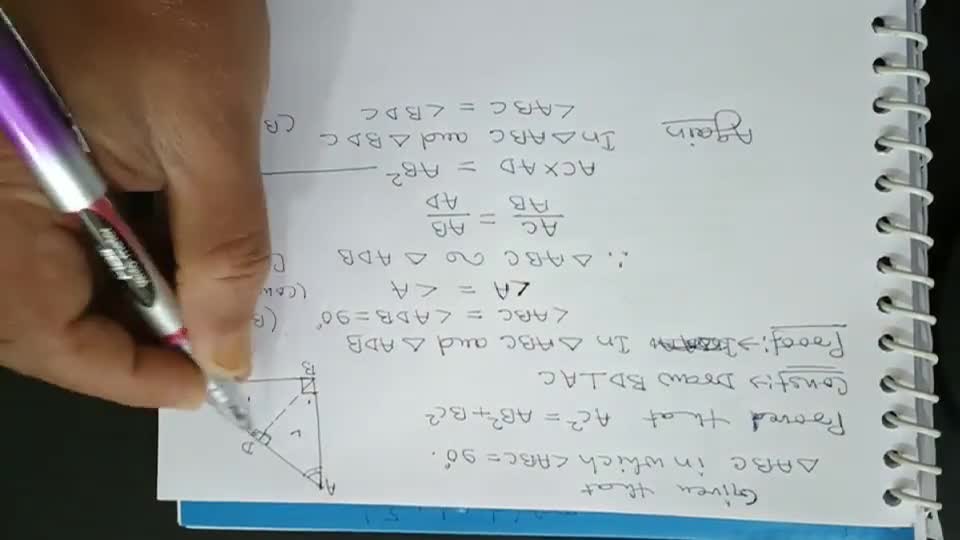 Given that
△ABC in which ∠ABC = 90°.
Proved that AC² = AB² + BC²
Const:→ Draw BD⊥AC
Proof:→ In △ABC and △ADB
∠ABC = ∠ADB = 90°
∠A = ∠A
∴ △ABC ~ △ADB
AC/AB = AB/AD
AC×AD = AB²
Again In △ABC and △BDC
∠ABC = ∠BDC
A
B
D